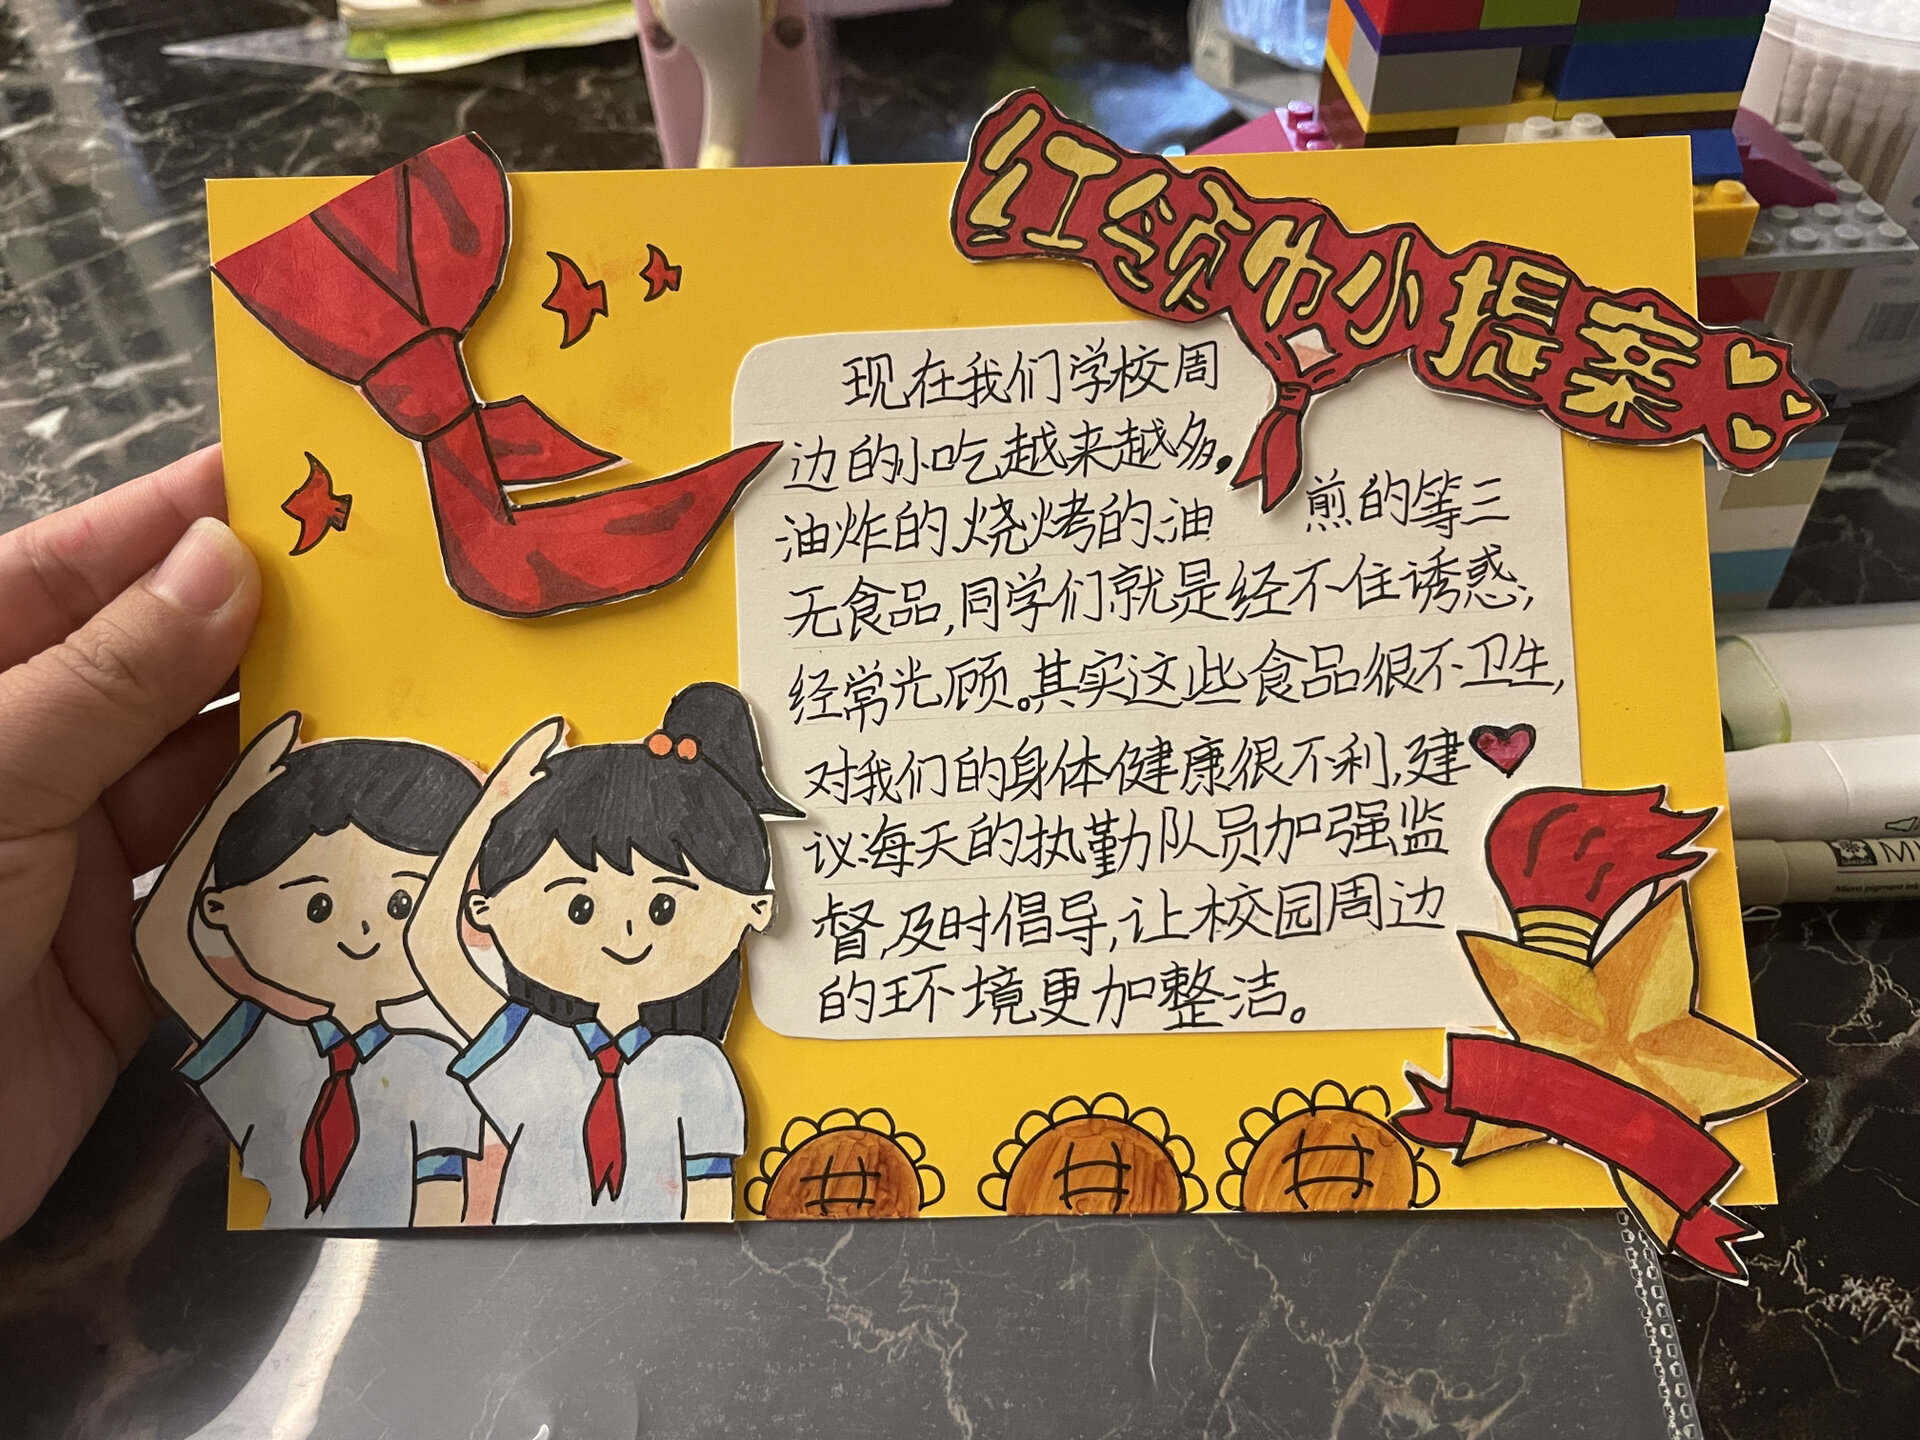 红领巾小提案
现在我们学校周
边的小吃越来越多,
油炸的烧烤的油煎的等三
无食品,同学们就是经不住诱惑,
经常光顾。其实这些食品很不卫生,
对我们的身体健康很不利,建
议海天的执勤队员加强监
督,及时倡导,让校园周边
的环境更加整洁。
SAKURA